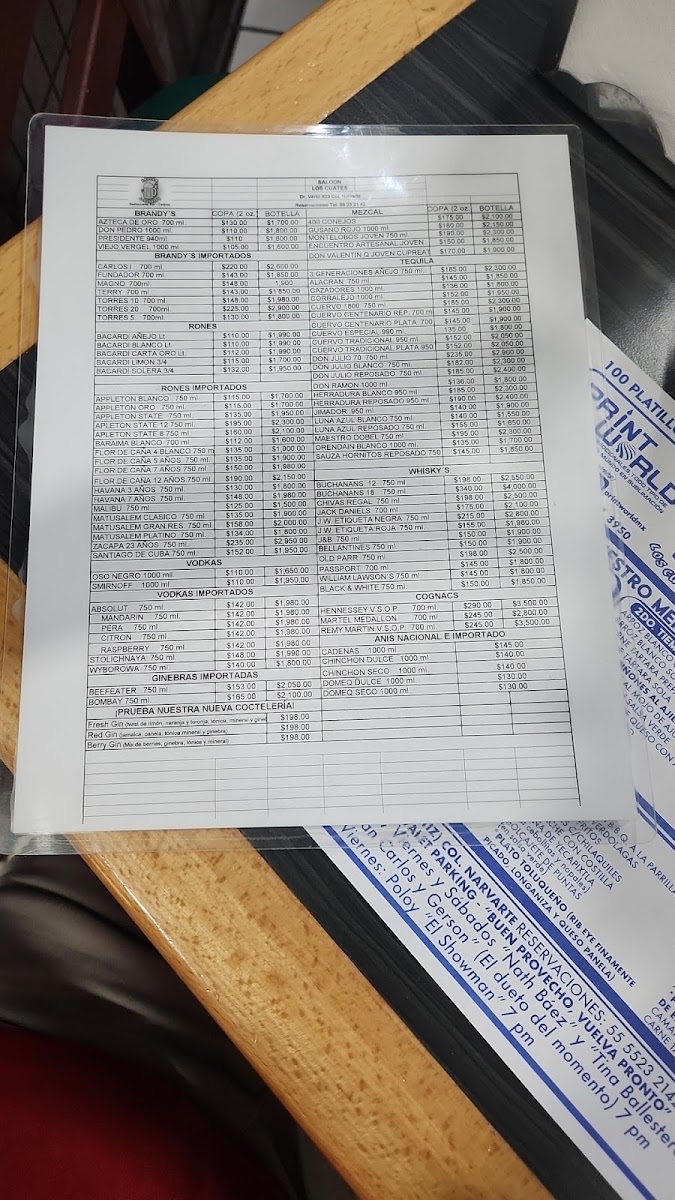 SALOON
LOS CUATES
BRANDY´S COPA (2 oz. BOTELLA
AZTECA DE ORO 700 ml $130.00 $1,700.00
DON PEDRO 1000 ml. $110.00 $1,800.00
PRESIDENTE 940ml. $110 $1,600.00
VIEJO VERGEL 1000 ml. $105.00 $1,600.00
BRANDY´S IMPORTADOS
CARLOS I 700 ml $220.00 $2,600.00
FUNDADOR 700 ml $143.00 $1,850.00
MAGNO 700ml. $148.00 1,900
TERRY 700 ml $143.00 $1,850.00
TORRES 10 700 ml. $148.00 $1,980.00
TORRES 20 700ml. $225.00 $2,900.00
TORRES 5 700ml. $130.00 $1,800.00
RONES
BACARDI AÑEJO Lt $110.00 $1,990.00
BACARDI BLANCO Lt $110.00 $1,990.00
BACARDI CARTA ORO Lt $112.00 $1,990.00
BACARDI LIMON 3/4 $115.00 $1,700.00
BACARDI SOLERA 3/4 $132.00 $1,950.00
RONES IMPORTADOS
APPLETON BLANCO 750 ml. $115.00 $1,700.00
APPLETON ORO 750 ml. $115.00 $1,700.00
APPLETON STATE 750 ml. $135.00 $1,950.00
APLETON STATE 12 750 ml. $195.00 $2,300.00
APLETON STATE 8 750 ml $160.00 $2,100.00
BARAIMA BLANCO 700 ml $112.00 $1,600.00
FLOR DE CAÑA 4 BLANCO 750 m $135.00 $1,900.00
FLOR DE CAÑA 5 AÑOS 750 ml. $135.00 $1,900.00
FLOR DE CAÑA 7 AÑOS 750 ml. $150.00 $1,980.00
FLOR DE CAÑA 12 AÑOS 750 ml. $190.00 $2,150.00
HAVANA 3 AÑOS 750 ml. $130.00 $1,800.00
HAVANA 7 AÑOS 750 ml. $148.00 $1,980.00
MALIBU 750 ml. $125.00 $1,500.00
MATUSALEM CLASICO 750 ml. $135.00 $1,900.00
MATUSALEM GRAN RES. 750 ml. $158.00 $2,000.00
MATUSALEM PLATINO 750 ml. $134.00 $1,800.00
ZACAPA 23 AÑOS 750 ml. $235.00 $2,950.00
SANTIAGO DE CUBA 750 ml. $152.00 $1,950.00
VODKAS
OSO NEGRO 1000 ml. $110.00 $1,650.00
SMIRNOFF 1000 ml $110.00 $1,950.00
VODKAS IMPORTADOS
ABSOLUT 750 ml. $142.00 $1,980.00
MANDARIN 750 ml. $142.00 $1,980.00
PERA 750 ml $142.00 $1,980.00
CITRON 750 ml. $142.00 $1,980.00
RASPBERRY 750 ml $142.00 $1,980.00
STOLICHNAYA 750 ml. $148.00 $1,990.00
WYBOROWA 750 ml. $140.00 $1,800.00
GINEBRAS IMPORTADAS
BEEFEATER 750 ml $153.00 $2,050.00
BOMBAY 750 ml. $165.00 $2,100.00
¡PRUEBA NUESTRA NUEVA COCTELERÍA!
Fresh Gin (twist de limón, naranja y toronja, tónica, mineral y gine $198.00
Red Gin (jamaica, canela, tónica mineral y ginebra) $198.00
Berry Gin (Mix de berries, ginebra, tónica y mineral) $198.00
MEZCAL COPA (2 oz. BOTELLA
400 CONEJOS $175.00 $2,100.00
GUSANO ROJO 1000 ml. $180.00 $2,150.00
MONTELOBOS JOVEN 750 ml. $190.00 $2,300.00
ENCUENTRO ARTESANAL JOVEN $150.00 $1,850.00
DON VALENTIN Q JOVEN CUPREAT $170.00 $1,900.00
TEQUILA
3 GENERACIONES AÑEJO 750 ml. $185.00 $2,300.00
ALACRAN 750 ml. $145.00 $1,850.00
CAZADORES 1000 ml. $136.00 $1,800.00
CORRALEJO 1000 ml. $152.00 $1,950.00
CUERVO 1800 750 ml. $185.00 $2,300.00
CUERVO CENTENARIO REP. 700 m $145.00 $1,900.00
CUERVO CENTENARIO PLATA 700 $145.00 $1,900.00
CUERVO ESPECIAL 990 ml. 135.00 $1,800.00
CUERVO TRADICIONAL 950 ml $152.00 $2,050.00
CUERVO TRADICIONAL PLATA 950 $152.00 $2,050.00
DON JULIO 70 750 ml. $235.00 $2,900.00
DON JULIO BLANCO 750 ml. $182.00 $2,300.00
DON JULIO REPOSADO 750 ml. $185.00 $2,400.00
DON RAMON 1000 ml $136.00 $1,800.00
HERRADURA BLANCO 950 ml. $185.00 $2,300.00
HERRADURA REPOSADO 950 ml. $190.00 $2,400.00
JIMADOR 950 ml. $140.00 $1,900.00
LUNA AZUL BLANCO 750 ml. $140.00 $1,550.00
LUNA AZUL REPOSADO 750 ml. $155.00 $1,650.00
MAESTRO DOBEL 750 ml. $195.00 $2,300.00
ORENDAIN BLANCO 1000 ml. $135.00 $1,700.00
SAUZA HORNITOS REPOSADO 750 $145.00 $1,850.00
WHISKY´S
BUCHANANS 12 750 ml. $198.00 $2,550.00
BUCHANANS 18 750 ml. $340.00 $4,000.00
CHIVAS REGAL 750 ml. $198.00 $2,500.00
JACK DANIELS 700 ml $175.00 $2,100.00
J.W. ETIQUETA NEGRA 750 ml. $215.00 $2,800.00
J.W. ETIQUETA ROJA 750 ml. $155.00 $1,980.00
J&B 750 ml. $150.00 $1,900.00
BELLANTINES 750 ml. $150.00 $1,900.00
OLD PARR 750 ml. $198.00 $2,500.00
PASSPORT 700 ml. $145.00 $1,800.00
WILLIAM LAWSON'S 750 ml $145.00 $1,800.00
BLACK & WHITE 750 ml. $150.00 $1,850.00
COGNACS
HENNESSEY V.S.O.P. 700 ml $290.00 $3,500.00
MARTEL MEDALLON 700 ml $245.00 $2,800.00
REMY MARTIN V.S.O.P. 700 ml $245.00 $3,500.00
ANIS NACIONAL E IMPORTADO
CADENAS 1000 ml. $145.00
CHINCHON DULCE 1000 ml. $140.00
CHINCHON SECO 1000 ml. $140.00
DOMEQ DULCE 1000 ml. $130.00
DOMEQ SECO 1000 ml. $130.00
100 PLATILLO
PRINT
WORLD
printworldmx
3950
PLATO TOLUQUEÑO (RIB EYE FINAMENTE
PICADO, LONGANIZA Y QUESO PANELA)
COL. NARVARTE RESERVACIONES, 55 5523 214
VALET PARKING - "BUEN PROVECHO, VUELVA PRONTO"
Viernes y Sábados "Nath Báez" y "Tina Ballester
an Carlos y Gerson" (El dueto del momento) 7 pm
Viernes: Poloy "El Showman" 7 pm